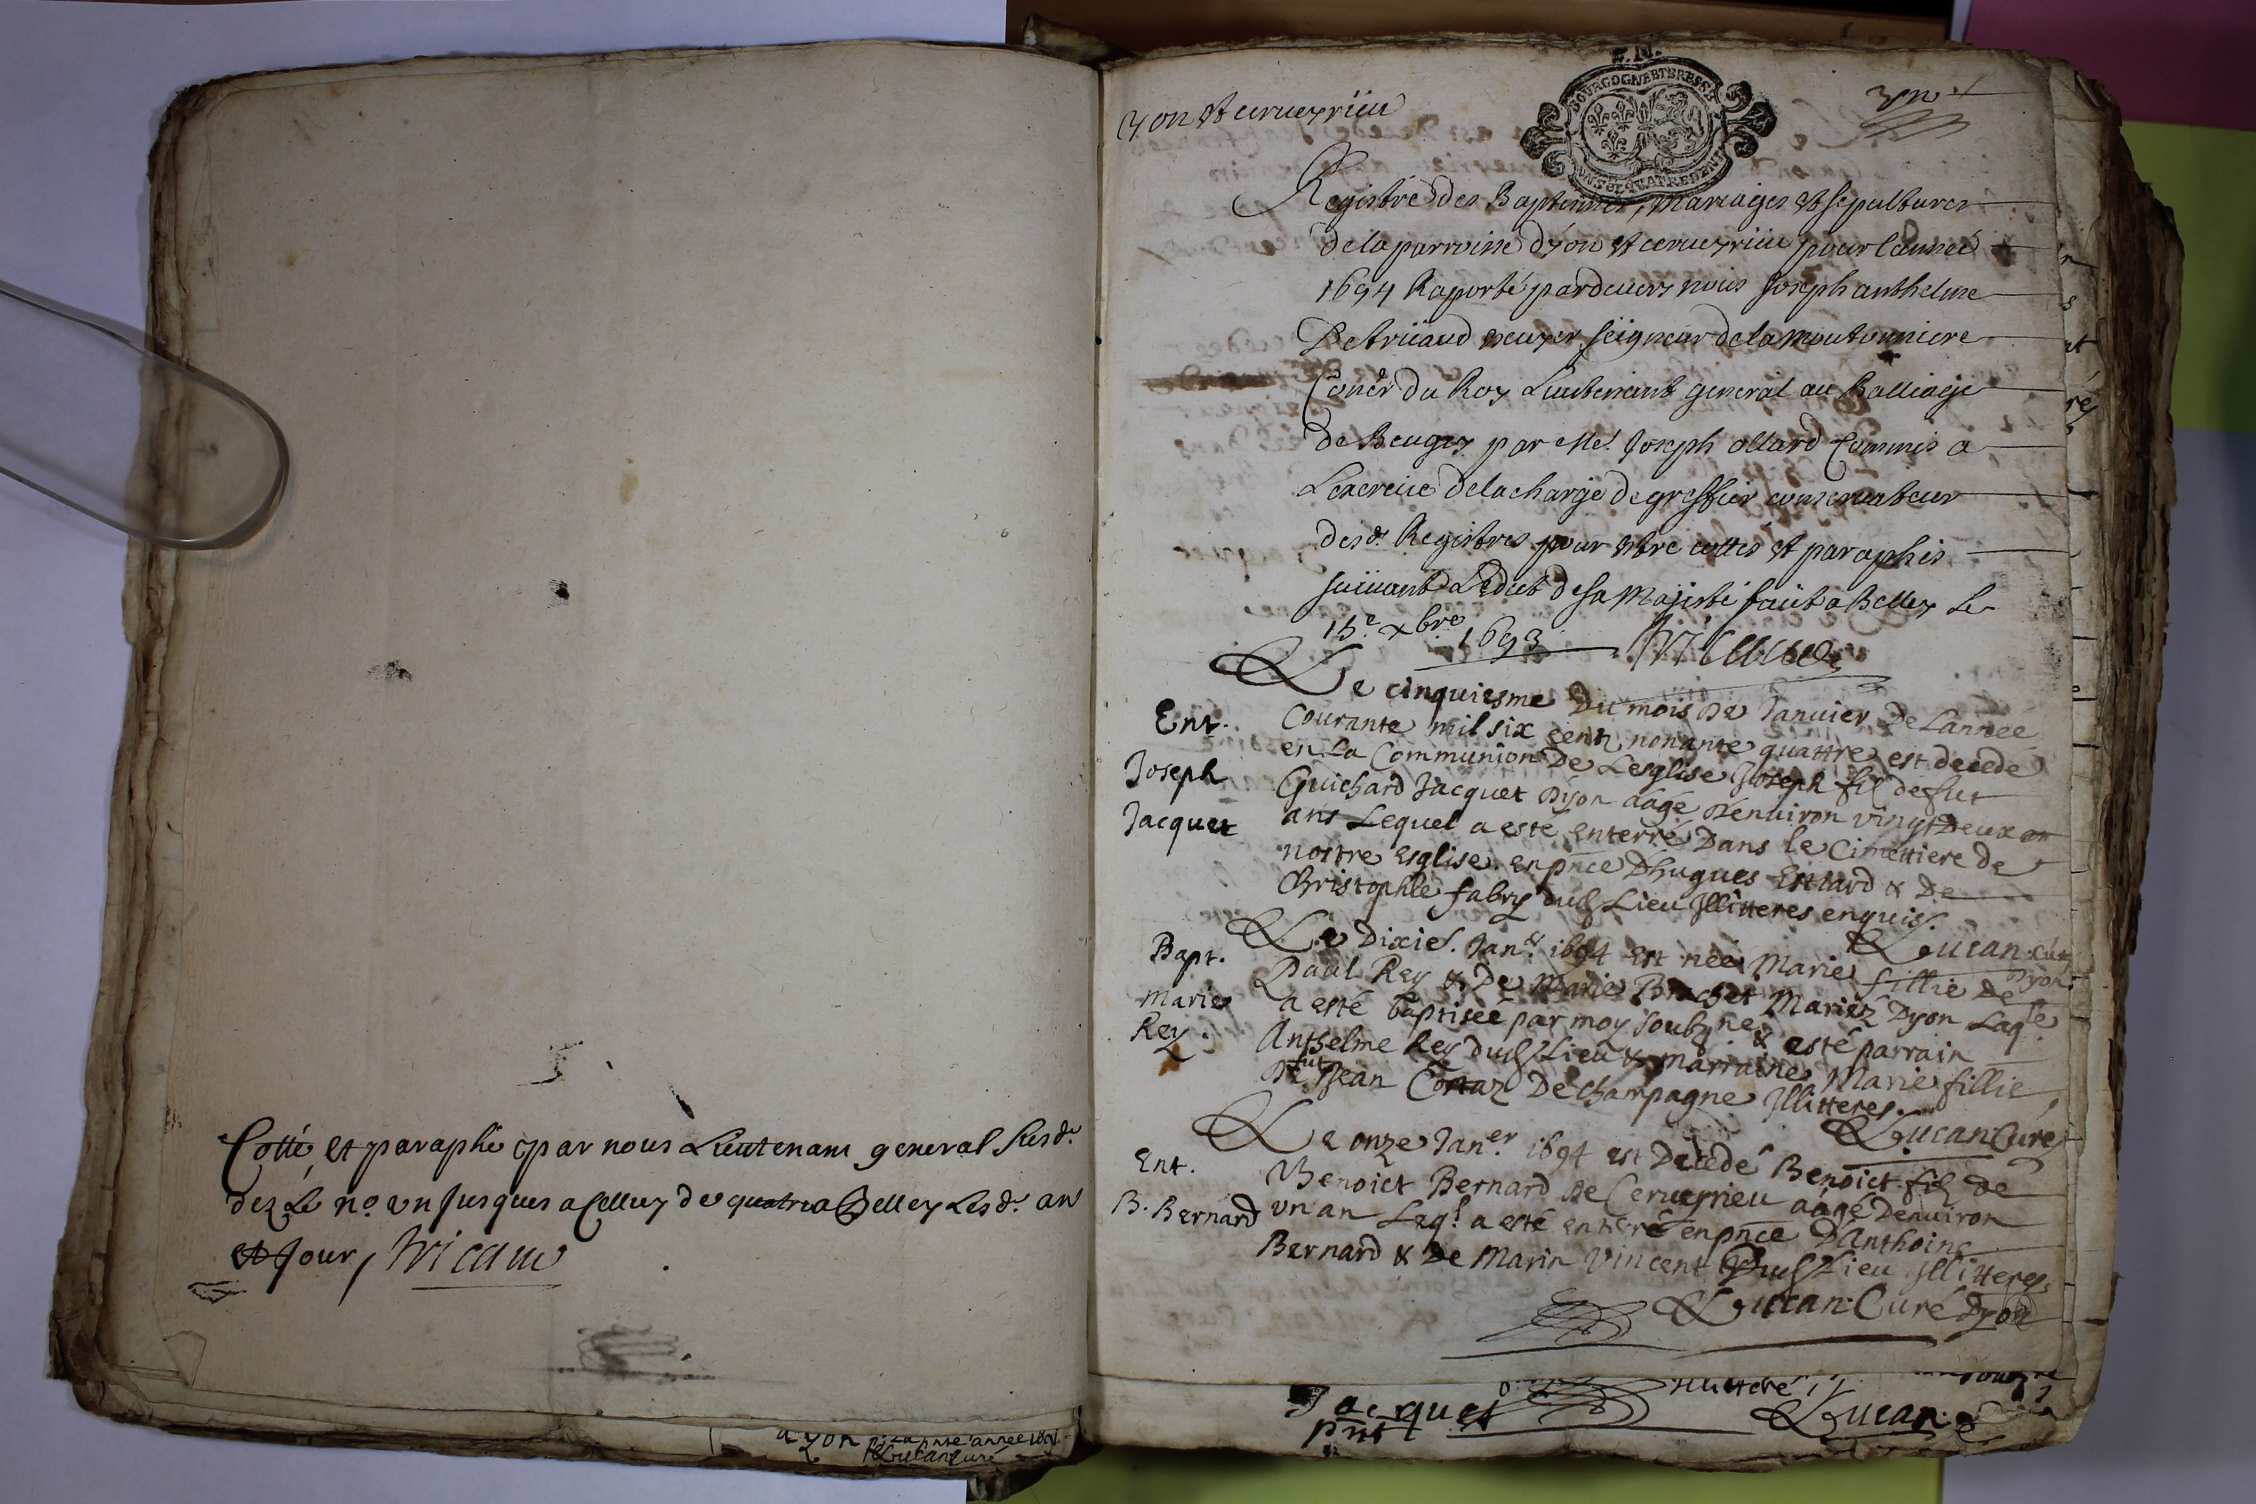 Cotté et paraphé par nous Lieutenant general susd.
dez Le no. un jusques a Celluy de quatre a Belley Lesd. an
et Jour, Tricaud
yon et cerveyrieu
BOURGOGNE ET BRESSE
UN SOL QUATRE DEN
Registre des Baptesmes, Mariages et sepultures
de la parroisse dyon et cerveyrieu pour lannée
1694 Raporté pardevers nous Joseph anthelme
De tricaud escuyer seigneur de la moutonniere
Coner du Roy Lieutenant general au Balliage
de Beugey par Me. Joseph ollard Commis a
Lexercice de la charge de greffier conservateur
desd. Registres pour estre cottes et paraphes
suivant LEdict de sa Majesté faict a Belley Le
15e. xbre 1693 Tricaud
Ent.
Joseph
Jacquet
Le cinquiesme Du mois De Janvier De Lannée
Courante mil six cent nonante quattre est decedé
en La Communion De Lesglise Joseph fils de fut
Guichard Jacquet Dyon aagé Denviron vingt Deux
ans Lequel a esté enterré Dans le Cimettiere de
nostre Esglise en pnce Dhugues Estiard & De
Christophle fabry dud Lieu Jllitteres enquis.
Lucan curé
Dyon
Bapt.
Marie
Rey.
Le Dixie. Janer 1694 est née Marie fillie De
Paul Rey & De Marie Brachet Mariez Dyon Laqle
a esté baptisée par moy soubzne & esté parrain
Anthelme Rey dud Lieu & marraine Marie fillie
De fut Jean Cottaz De Champagne Jllitteres.
Lucan Curé
Ent.
B. Bernard
Le onze Janer. 1694 est Decedé Benoict fils De
Benoict Bernard De Cerveyrieu aagé Denviron
un an Leql a esté enterré en pnce DAnthoine
Bernard & De Marin Vincent Dud Lieu Jllitteres.
Lucan Curé Dyon
Jacquet
pnt
Lucan
Dyon La pnte année
Lucan Curé